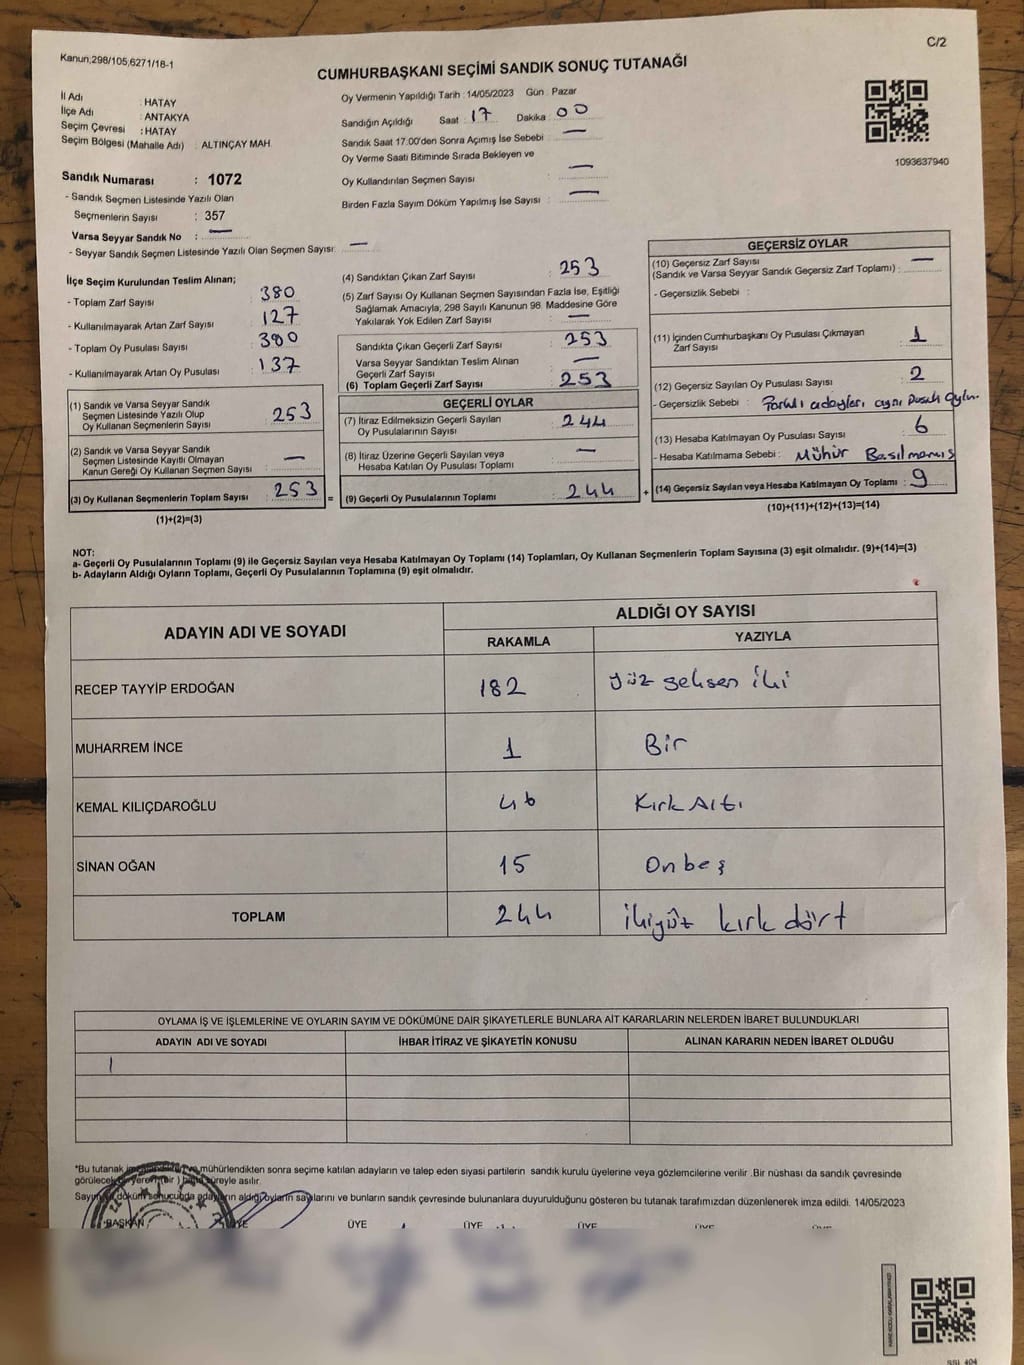 Kanun,298/105,6271/18-1
C/2
CUMHURBAŞKANI SEÇİMİ SANDIK SONUÇ TUTANAĞI
İl Adı : HATAY
İlçe Adı : ANTAKYA
Seçim Çevresi : HATAY
Seçim Bölgesi (Mahalle Adı) : ALTINÇAY MAH.
Oy Vermenin Yapıldığı Tarih : 14/05/2023 Gün : Pazar
Sandığın Açıldığı Saat : 17 Dakika : 00
Sandık Saat 17:00'den Sonra Açımış İse Sebebi : —
Oy Verme Saati Bitiminde Sırada Bekleyen ve
Oy Kullandırılan Seçmen Sayısı : —
Birden Fazla Sayım Döküm Yapılmış İse Sayısı : —
1093637940
Sandık Numarası : 1072
- Sandık Seçmen Listesinde Yazılı Olan
Seçmenlerin Sayısı : 357
Varsa Seyyar Sandık No : —
- Seyyar Sandık Seçmen Listesinde Yazılı Olan Seçmen Sayısı: —
İlçe Seçim Kurulundan Teslim Alınan;
- Toplam Zarf Sayısı : 380
- Kullanılmayarak Artan Zarf Sayısı : 127
- Toplam Oy Pusulası Sayısı : 380
- Kullanılmayarak Artan Oy Pusulası : 137
(1) Sandık ve Varsa Seyyar Sandık
Seçmen Listesinde Yazılı Olup
Oy Kullanan Seçmenlerin Sayısı : 253
(2) Sandık ve Varsa Seyyar Sandık
Seçmen Listesinde Kayıtlı Olmayan
Kanun Gereği Oy Kullanan Seçmen Sayısı : —
(3) Oy Kullanan Seçmenlerin Toplam Sayısı : 253
(1)+(2)=(3)
(4) Sandıktan Çıkan Zarf Sayısı : 253
(5) Zarf Sayısı Oy Kullanan Seçmen Sayısından Fazla İse, Eşitliği
Sağlamak Amacıyla, 298 Sayılı Kanunun 98. Maddesine Göre
Yakılarak Yok Edilen Zarf Sayısı : —
Sandıkta Çıkan Geçerli Zarf Sayısı : 253
Varsa Seyyar Sandıktan Teslim Alınan
Geçerli Zarf Sayısı : —
(6) Toplam Geçerli Zarf Sayısı : 253
=
GEÇERLİ OYLAR
(7) İtiraz Edilmeksizin Geçerli Sayılan
Oy Pusulalarının Sayısı : 244
(8) İtiraz Üzerine Geçerli Sayılan veya
Hesaba Katılan Oy Pusulası Toplamı : —
(9) Geçerli Oy Pusulalarının Toplamı : 244
+
GEÇERSİZ OYLAR
(10) Geçersiz Zarf Sayısı
(Sandık ve Varsa Seyyar Sandık Geçersiz Zarf Toplamı) : —
- Geçersizlik Sebebi :
(11) İçinden Cumhurbaşkanı Oy Pusulası Çıkmayan
Zarf Sayısı : 1
(12) Geçersiz Sayılan Oy Pusulası Sayısı : 2
- Geçersizlik Sebebi : Farklı adayları aynı
(13) Hesaba Katılmayan Oy Pusulası Sayısı : 6
- Hesaba Katılmama Sebebi : Mühür Basılmamış
(14) Geçersiz Sayılan veya Hesaba Katılmayan Oy Toplamı : 9
(10)+(11)+(12)+(13)=(14)
NOT:
a- Geçerli Oy Pusulalarının Toplamı (9) ile Geçersiz Sayılan veya Hesaba Katılmayan Oy Toplamı (14) Toplamları, Oy Kullanan Seçmenlerin Toplam Sayısına (3) eşit olmalıdır. (9)+(14)=(3)
b- Adayların Aldığı Oyların Toplamı, Geçerli Oy Pusulalarının Toplamına (9) eşit olmalıdır.
ADAYIN ADI VE SOYADI
ALDIĞI OY SAYISI
RAKAMLA YAZIYLA
RECEP TAYYİP ERDOĞAN 182 yüz seksen iki
MUHARREM İNCE 1 Bir
KEMAL KILIÇDAROĞLU 46 Kırk Altı
SİNAN OĞAN 15 On beş
TOPLAM 244 ikiyüz kırk dört
OYLAMA İŞ VE İŞLEMLERİNE VE OYLARIN SAYIM VE DÖKÜMÜNE DAİR ŞİKAYETLERLE BUNLARA AİT KARARLARIN NELERDEN İBARET BULUNDUKLARI
ADAYIN ADI VE SOYADI İHBAR İTİRAZ VE ŞİKAYETİN KONUSU ALINAN KARARIN NEDEN İBARET OLDUĞU
*Bu tutanak mühürlendikten sonra seçime katılan adayların ve talep eden siyasi partilerin sandık kurulu üyelerine veya gözlemcilerine verilir .Bir nüshası da sandık çevresinde
görülecek bir yere bir süreyle asılır.
Sayım döküm sonucunda adayların aldığı oyların sayılarını ve bunların sandık çevresinde bulunanlara duyurulduğunu gösteren bu tutanak tarafımızdan düzenlenerek imza edildi. 14/05/2023
BAŞKAN ÜYE ÜYE ÜYE ÜYE ÜYE ÜYE